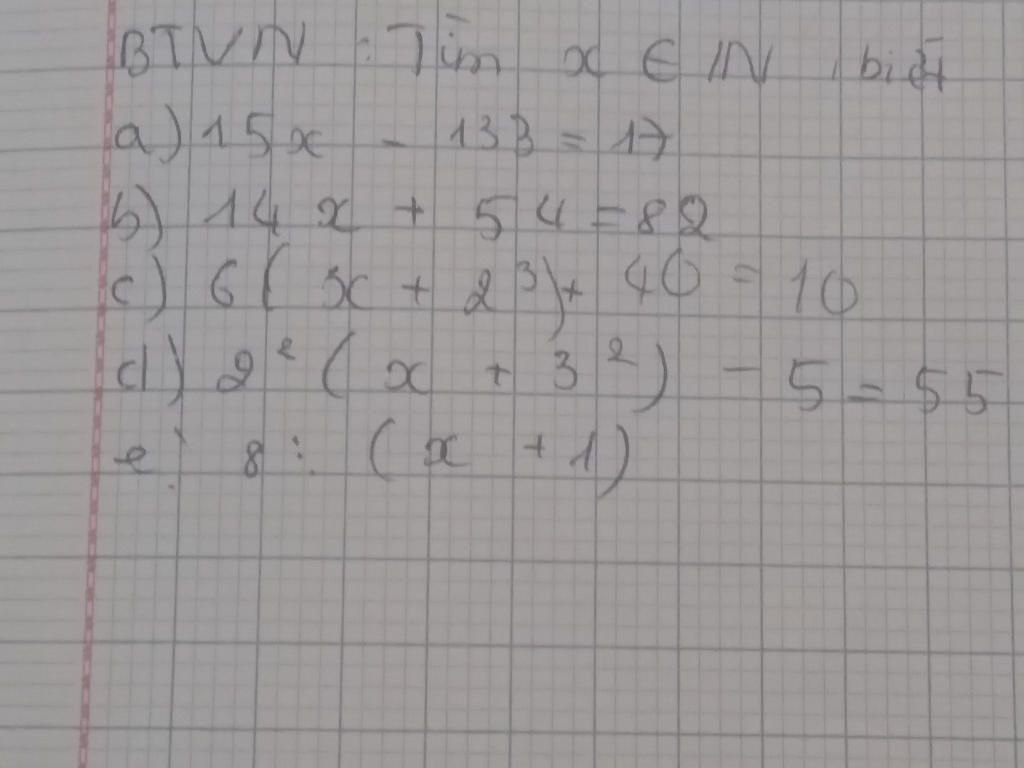 BTVN : Tìm x ∈ IN, biết
a) 15x - 133 = 17
b) 14x + 54 = 82
c) 6(x + 2³) + 40 = 10
d) 2² (x + 3²) - 5 = 55
e) 8 : (x + 1)